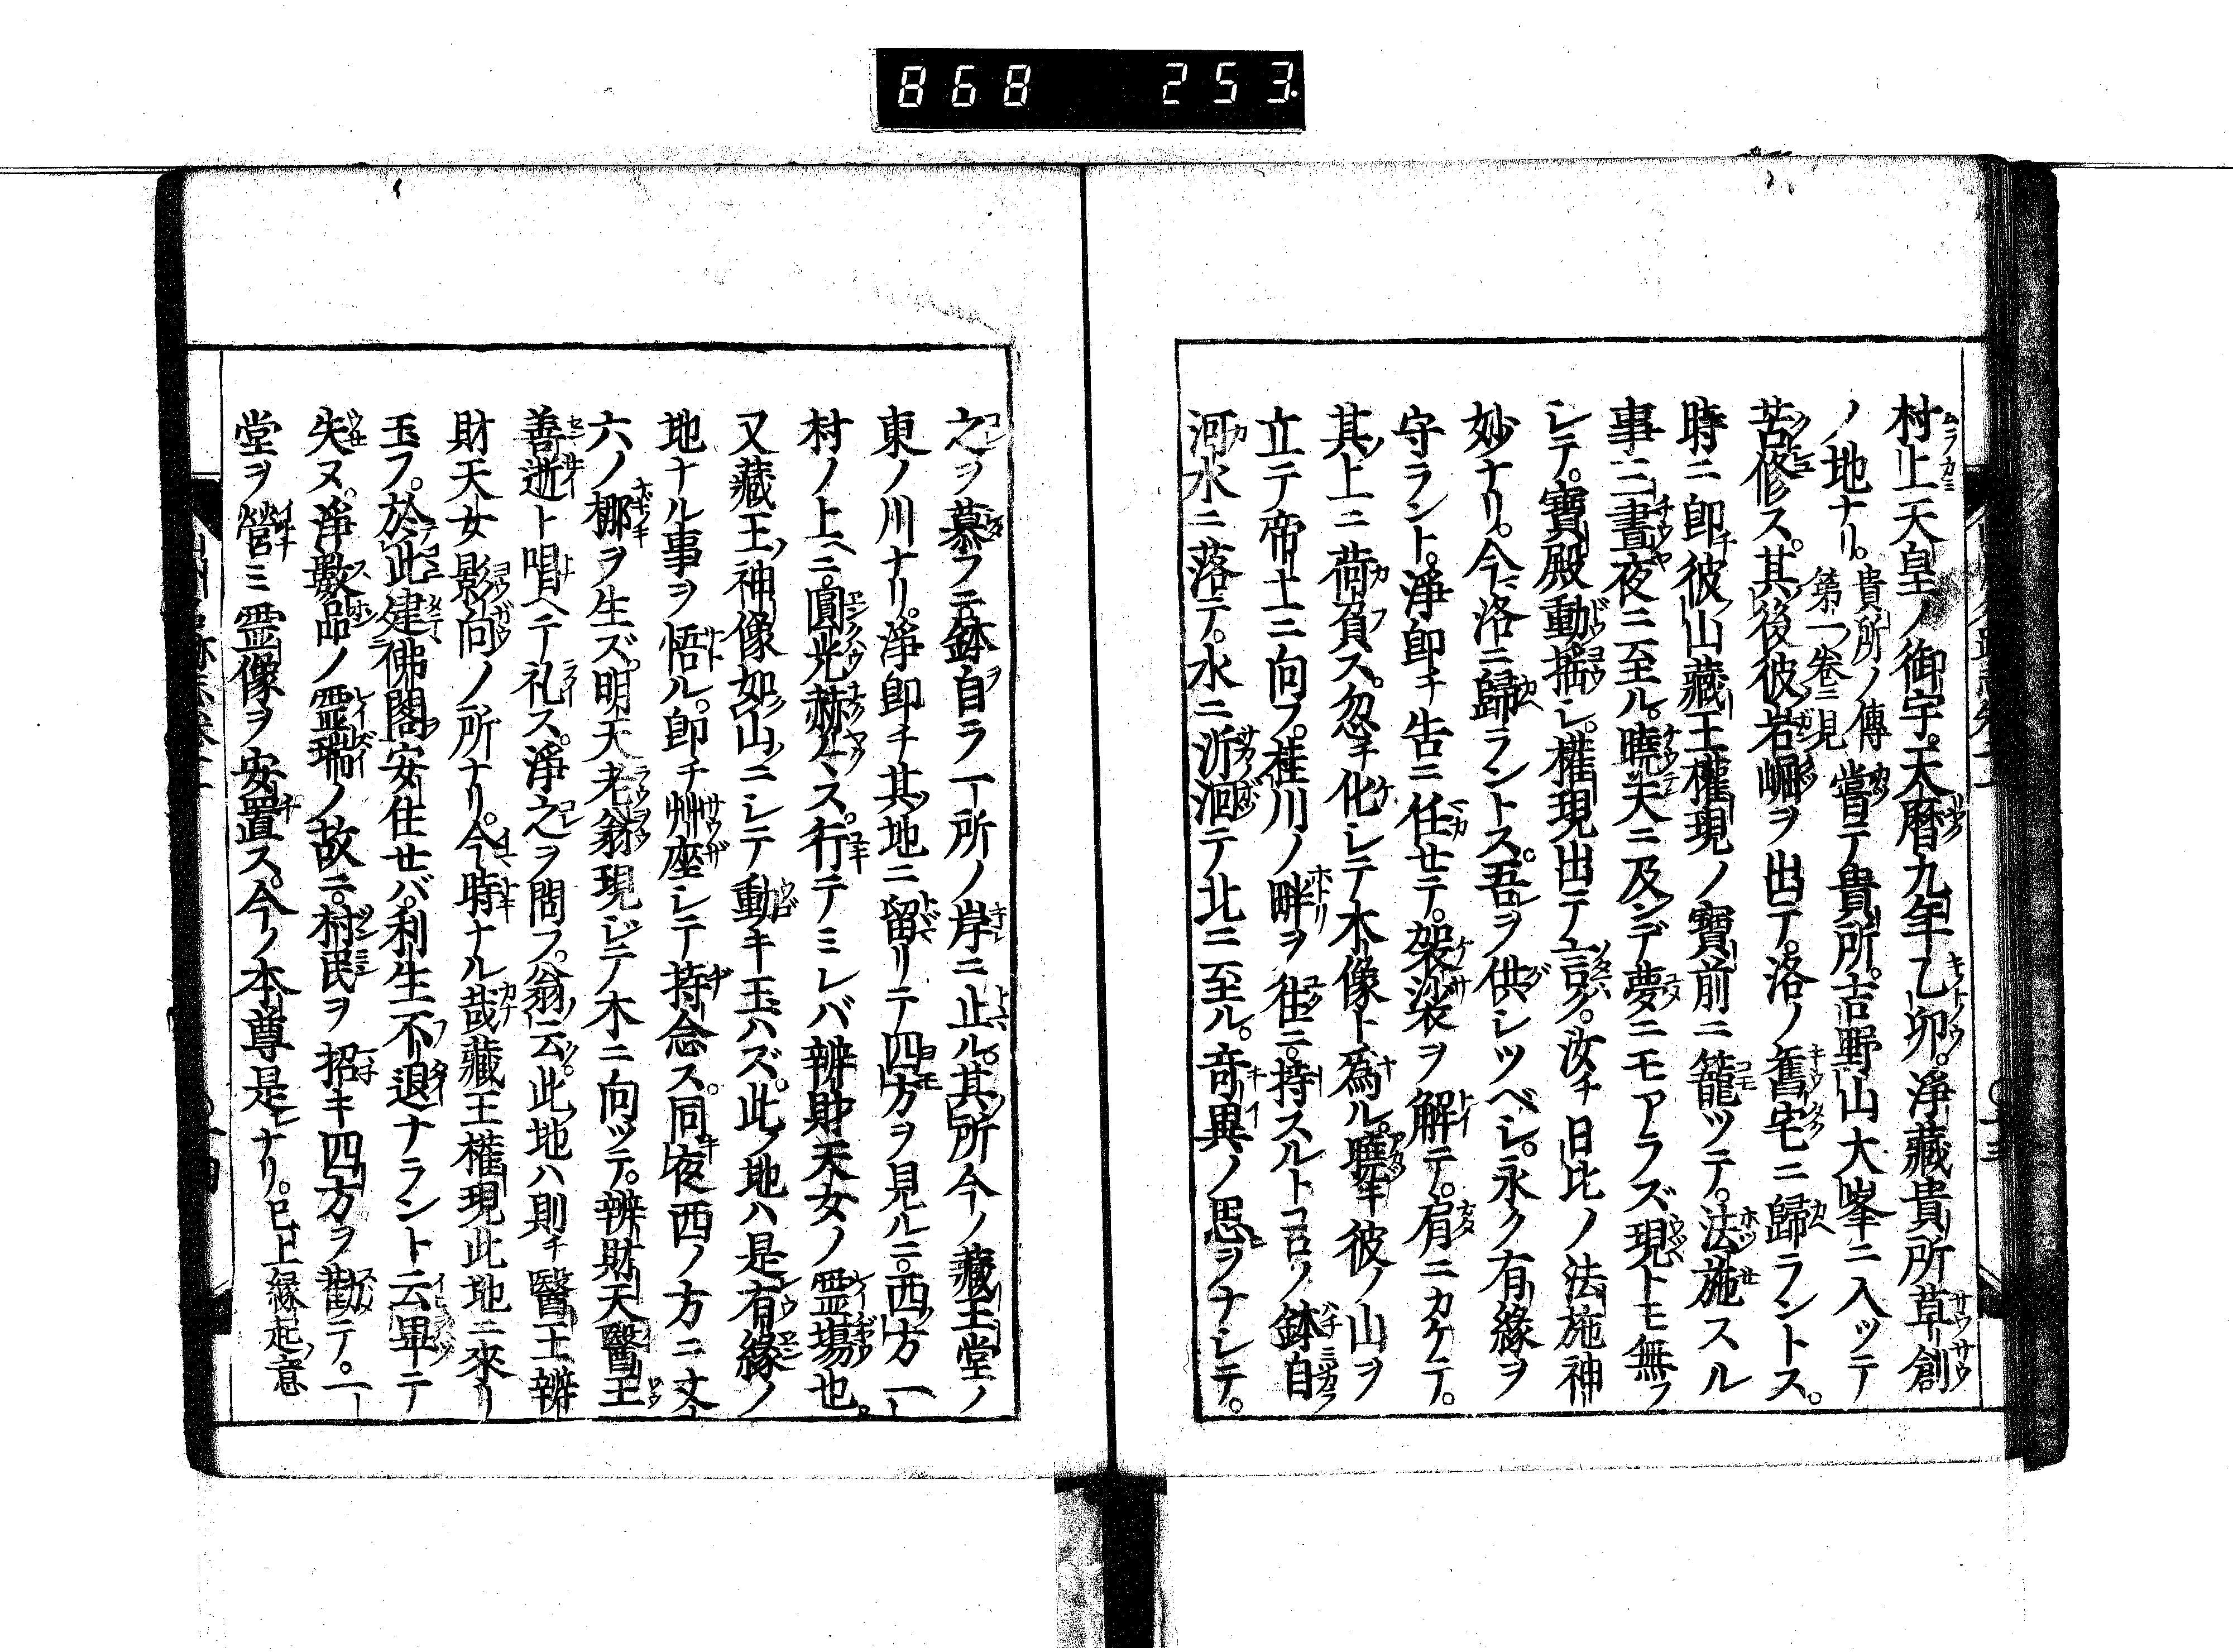 868 253
村上天皇ノ御宇。天暦九年乙卯。淨藏貴所草創
ノ地ナリ。貴所ノ傳第一卷ニ見嘗テ貴所。吉野山大峯ニ入ッテ
苦修ス。其後彼岩崛ヲ出テ。洛ノ舊宅ニ歸ラントス。
時ニ卽彼山藏王權現ノ寶前ニ籠ツテ。法施スル
事三晝夜ニ至ル。曉天ニ及ンデ夢ニモアラズ現トモ無フ
シテ。寶殿動揺シ。權現出テ言ク。汝チ日比ノ法施神
妙ナリ。今洛ニ歸ラントス。吾レヲ供シツベシ。永ク有縁ヲ
守ラント。淨卽チ告ニ任セテ。袈裟ヲ解テ。肩ニカケテ。
其上ニ荷負ス。忽チ化シテ木像ト爲ル。曉彼ノ山ヲ
立テ帝土ニ向フ。桂川ノ畔ヲ往ニ。持スルトコロノ鉢自
河水ニ落テ。水ニ泝洄テ北ニ至ル。奇異ノ思ヲナシテ。
之ヲ慕フニ鉢自ラ一所ノ岸ニ止ル。其所今ノ藏王堂ノ
東ノ川ナリ。淨卽チ其地ニ留リテ四方ヲ見ルニ。西方一
村ノ上ヘニ。圓光赫々ス。行テミレバ辨財天女ノ霊場也。
又藏王ノ神像如山ニシテ動キ玉ハズ。此ノ地ハ是有縁ノ
地ナル事ヲ悟ル。卽チ艸座シテ持念ス。同夜西ノ方ニ丈
六ノ梛ヲ生ズ。明天老翁現ジテ木ニ向ッテ。辨財天醫王
善逝ト唱ヘテ礼ス。淨之ヲ問フ。翁云。此地ハ則チ醫王辨
財天女影向ノ所ナリ。今時ナル哉藏王權現此地ニ來リ
玉フ。於此建佛閣安住セバ。利生不退ナラント云畢テ
失ヌ。淨數品ノ霊瑞ノ故ニ。村民ヲ招キ四方ヲ勸テ。一
堂ヲ營ミ霊像ヲ安置ス。今ノ本尊是ナリ。已上縁起ノ意